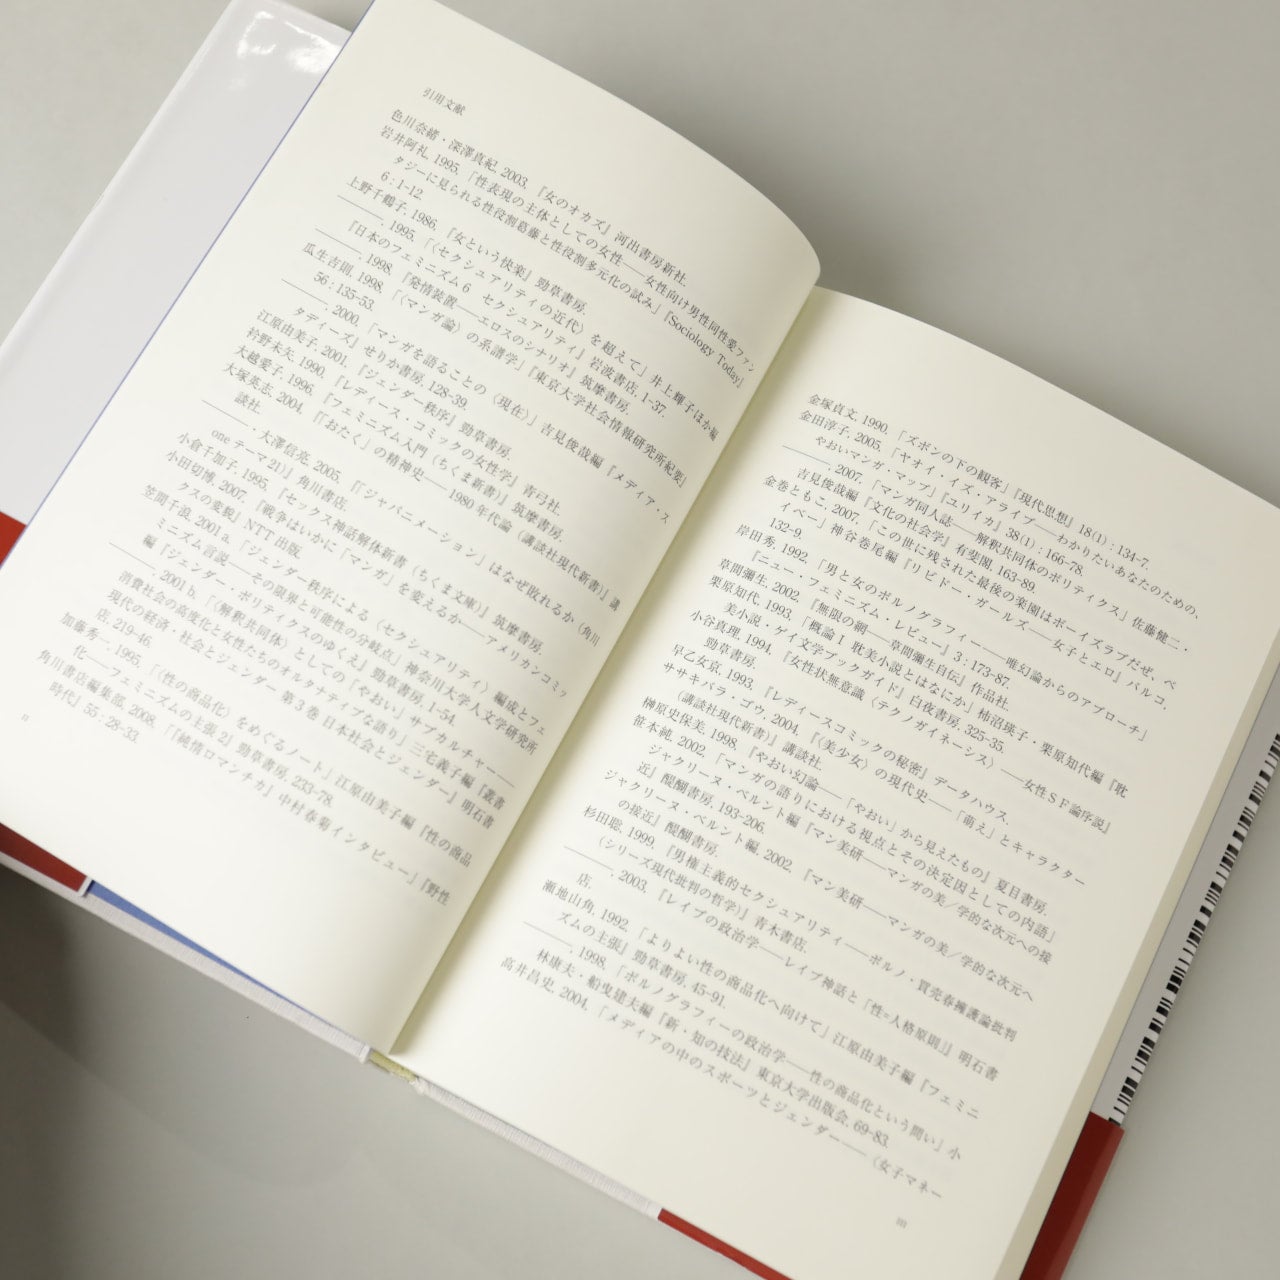 引用文献
色川奈緒・深澤真紀. 2003. 『女のオカズ』河出書房新社.
岩井阿礼. 1995. 「性表現の主体としての女性——女性向け男性同性愛ファン
タジーに見られる性役割葛藤と性役割多元化の試み」『Sociology Today』
6 : 1-12.
上野千鶴子. 1986. 『女という快楽』勁草書房.
———. 1995. 「〈セクシュアリティの近代〉を超えて」井上輝子ほか編
『日本のフェミニズム6 セクシュアリティ』岩波書店, 1-37.
———. 1998. 『発情装置——エロスのシナリオ』筑摩書房.
瓜生吉則. 1998. 「〈マンガ論〉の系譜学」『東京大学社会情報研究所紀要』
56 : 135-53.
———. 2000. 「マンガを語ることの〈現在〉」吉見俊哉編『メディア・ス
タディーズ』せりか書房, 128-39.
江原由美子. 2001. 『ジェンダー秩序』勁草書房.
衿野未矢. 1990. 『レディース・コミックの女性学』青弓社.
大越愛子. 1996. 『フェミニズム入門（ちくま新書）』筑摩書房.
大塚英志. 2004. 『「おたく」の精神史——1980年代論（講談社現代新書）』講
談社.
———・大澤信亮. 2005. 『「ジャパニメーション」はなぜ敗れるか（角川
oneテーマ21）』角川書店.
小倉千加子. 1995. 『セックス神話解体新書（ちくま文庫）』筑摩書房.
小田切博. 2007. 『戦争はいかに「マンガ」を変えるか——アメリカンコミッ
クスの変貌』NTT出版.
笠間千浪. 2001 a. 「ジェンダー秩序による〈セクシュアリティ〉編成とフェ
ミニズム言説——その限界と可能性の分岐点」神奈川大学人文学研究所
編『ジェンダー・ポリティクスのゆくえ』勁草書房, 1-54.
———. 2001 b. 「〈解釈共同体〉としての「やおい」サブカルチャー——
消費社会の高度化と女性たちのオルタナティブな語り」三宅義子編『叢書
現代の経済・社会とジェンダー 第3巻 日本社会とジェンダー』明石書
店, 219-46.
加藤秀一. 1995. 「〈性の商品化〉をめぐるノート」江原由美子編『性の商品
化——フェミニズムの主張2』勁草書房, 233-78.
角川書店編集部. 2008. 「『純情ロマンチカ』中村春菊インタビュー」『野性
時代』55 : 28-33.
ii
金塚貞文. 1990. 「ズボンの下の観客」『現代思想』18(1) : 134-7.
金田淳子. 2005. 「ヤオイ・イズ・アライブ——わかりたいあなたのための,
やおいマンガ・マップ」『ユリイカ』38(1) : 166-78.
———. 2007. 「マンガ同人誌——解釈共同体のポリティクス」佐藤健二・
吉見俊哉編『文化の社会学』有斐閣, 163-89.
金巻ともこ. 2007. 「この世に残された最後の楽園はボーイズラブだぜ、ベ
イベー」神谷巻尾編『リビドー・ガールズ——女子とエロ』パルコ,
132-9.
岸田秀. 1992. 「男と女のポルノグラフィー——唯幻論からのアプローチ」
『ニュー・フェミニズム・レビュー』3 : 173-87.
草間彌生. 2002. 『無限の網——草間彌生自伝』作品社.
栗原知代. 1993. 「概論1 耽美小説とはなにか」柿沼瑛子・栗原知代編『耽
美小説・ゲイ文学ブックガイド』白夜書房, 325-35.
小谷真理. 1994. 『女性状無意識〈テクノガイネーシス〉——女性SF論序説』
勁草書房.
早乙女京. 1993. 『レディースコミックの秘密』データハウス.
ササキバラ・ゴウ. 2004. 『〈美少女〉の現代史——「萌え」とキャラクター
（講談社現代新書）』講談社.
榊原史保美. 1998. 『やおい幻論——「やおい」から見えたもの』夏目書房.
笹本純. 2002. 「マンガの語りにおける視点とその決定因としての内語」
ジャクリーヌ・ベルント編『マン美研——マンガの美／学的な次元への接
近』醍醐書房, 193-206.
ジャクリーヌ・ベルント編. 2002. 『マン美研——マンガの美／学的な次元へ
の接近』醍醐書房.
杉田聡. 1999. 『男権主義的セクシュアリティ——ポルノ・買売春擁護論批判
（シリーズ現代批判の哲学）』青木書店.
———. 2003. 『レイプの政治学——レイプ神話と「性＝人格原則」』明石書
店.
瀬地山角. 1992. 「よりよい性の商品化へ向けて」江原由美子編『フェミニ
ズムの主張』勁草書房, 45-91.
———. 1998. 「ポルノグラフィーの政治学——性の商品化という問い」小
林康夫・船曳建夫編『新・知の技法』東京大学出版会, 69-83.
高井昌吏. 2004. 「メディアの中のスポーツとジェンダー——〈女子マネー
iii